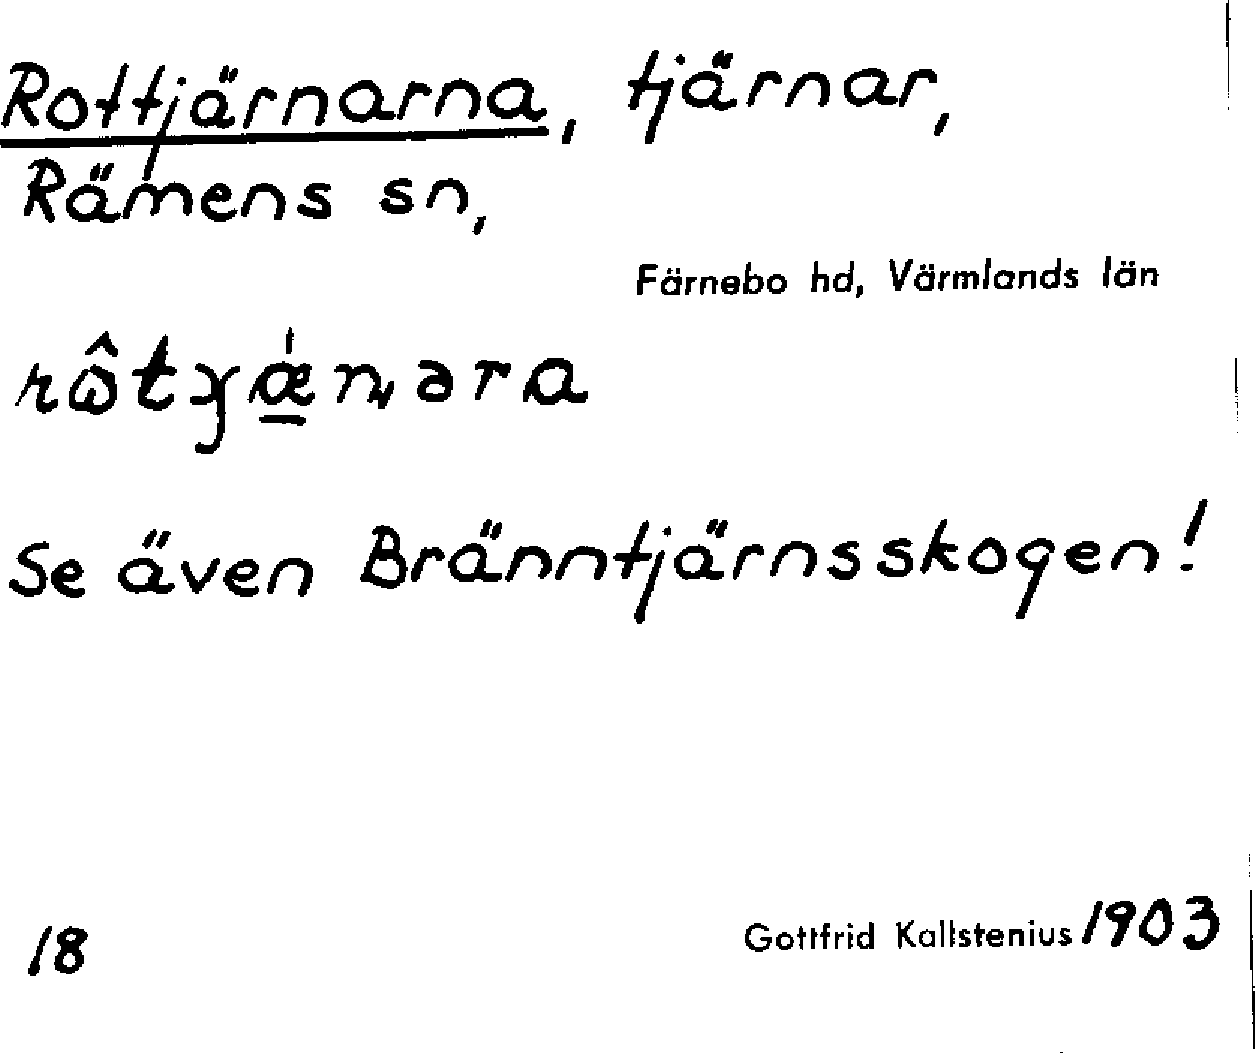 Rottjärnarna, tjärnar,
Rämens sn,
Färnebo hd, Värmlands län
Se även Bränntjärnsskogen!
18
Gottfrid Kallstenius 1903